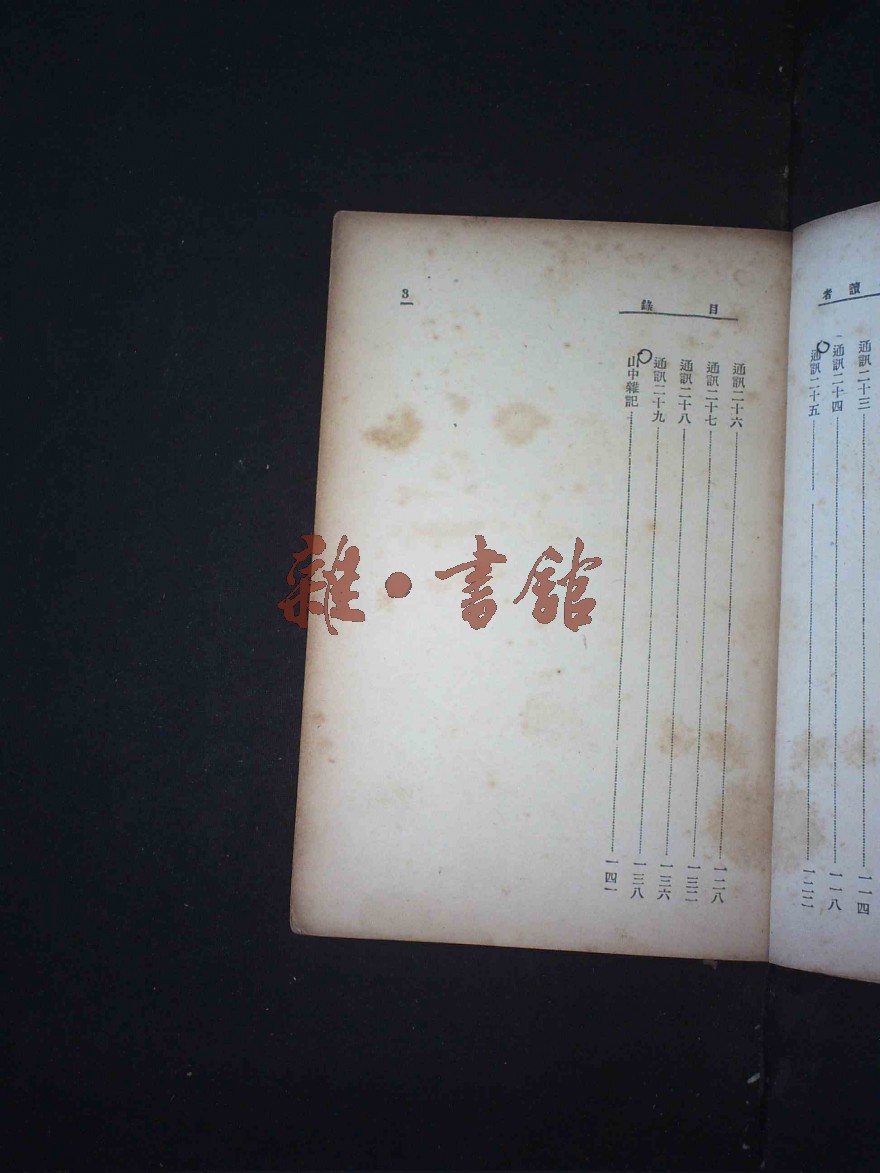 讀者
通訊二十三 一一四
通訊二十四 一一八
通訊二十五 一二二
目錄
3
通訊二十六 一二八
通訊二十七 一三二
通訊二十八 一三六
通訊二十九 一三八
山中雜記 一四一
雜·書館